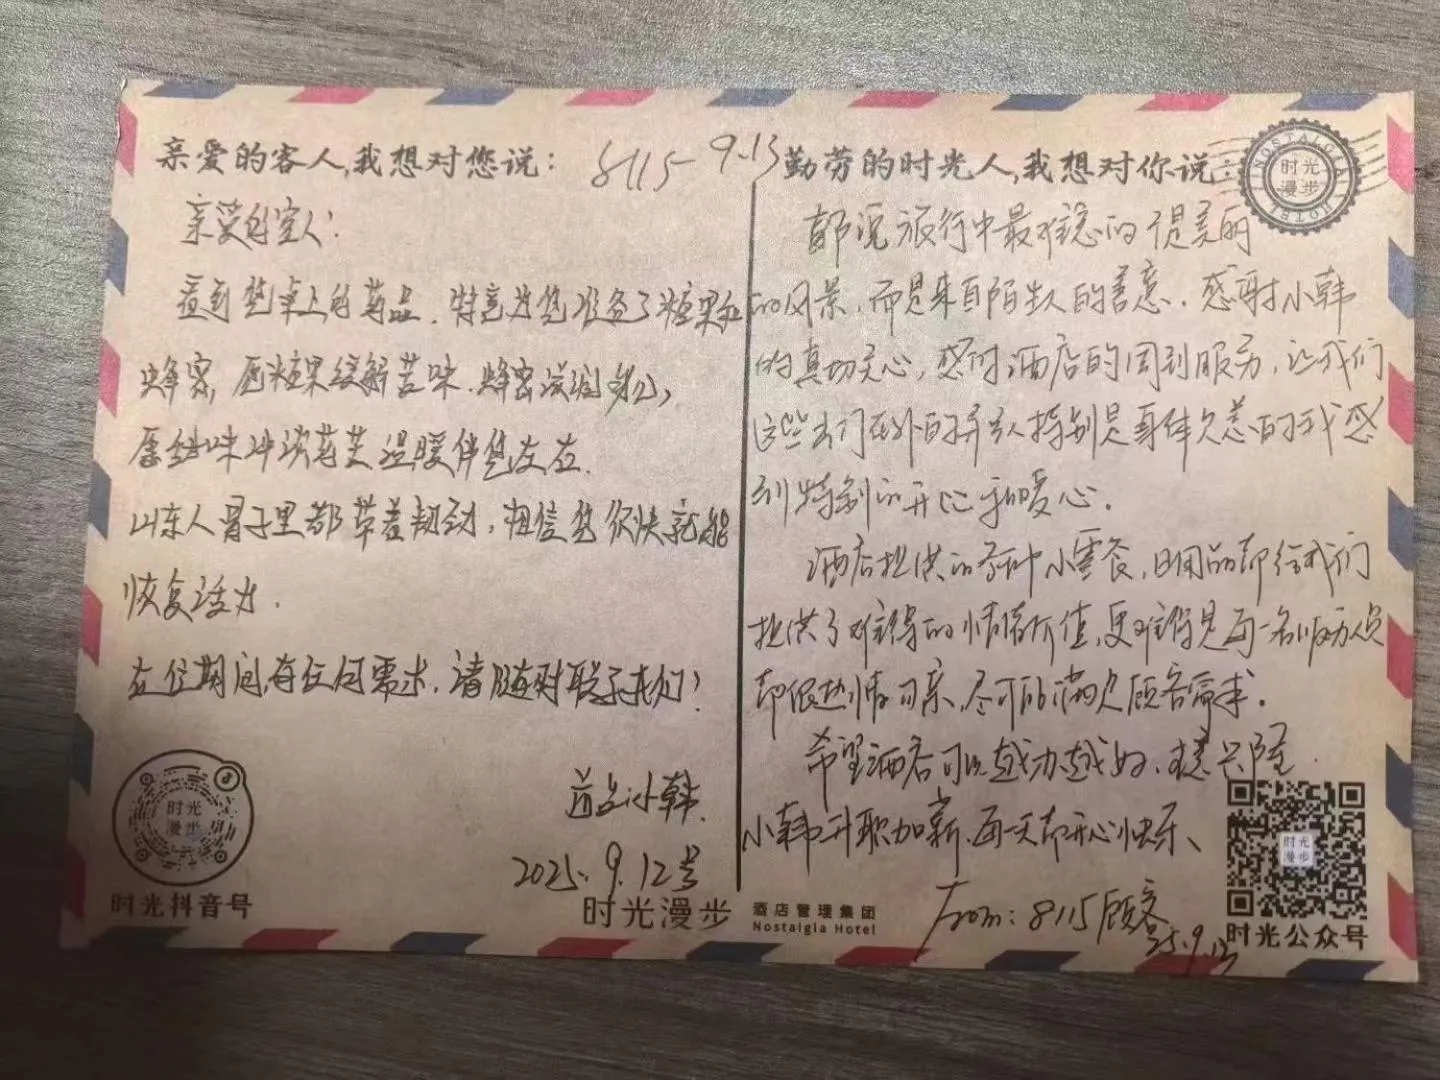 亲爱的客人,我想对您说:
8115 9.13
亲爱的客人!
看到您桌上的药品,特意为您准备了糖果和
蜂蜜,愿糖果缓解苦味,蜂蜜滋润身心,
愿甜味冲淡药苦 温暖伴您左右.
山东人骨子里都带着韧劲,相信您很快就能
恢复活力.
在住期间,有任何需求,请随时联系我们!
前台小韩.
2025.9.12号
勤劳的时光人,我想对你说:
都说旅行中最难忘的不是美丽
的风景,而是来自陌生人的善意.感谢小韩
的真切关心,感谢酒店的周到服务,让我们
这些出门在外的异乡人特别是身体欠恙的我感
到特别的开心和暖心.
酒店提供的各种小零食,日用品都给我们
提供了难得的情绪价值,更难得是每一名服务人员
都很热情可亲,尽可能满足顾客需求.
希望酒店可以越办越好、生意兴隆.
小韩升职加薪、每一天都开心快乐、
From: 8115顾客
25.9.13
NOSTALGIA HOTEL
时光
漫步
时光
漫步
时光抖音号
时光漫步 酒店管理集团
Nostalgia Hotel
时光
漫步
时光公众号